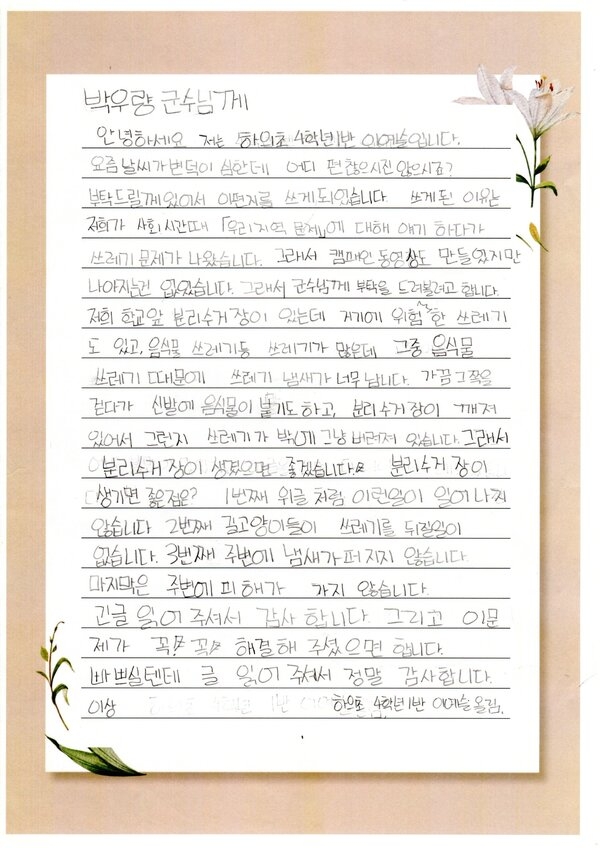 박우량 군수님께
안녕하세요 저는 하의초 4학년1반 이예슬입니다.
요즘 날씨가 변덕이 심한데 어디 편찮으시진 않으시죠?
부탁드릴께 있어서 이편지를 쓰게 되었습니다 쓰게 된 이유는
저희가 사회시간때 「우리지역 문제」에 대해 얘기 하다가
쓰레기 문제가 나왔습니다. 그래서 캠페인 동영상도 만들었지만
나아지는건 없었습니다. 그래서 군수님께 부탁을 드려볼려고 합니다.
저희 학교앞 분리수거장이 있는데 거기에 위험한 쓰레기
도 있고, 음식물 쓰레기등 쓰레기가 많은데 그중 음식물
쓰레기 때문에 쓰레기 냄새가 너무 납니다. 가끔 그쪽을
걷다가 신발에 음식물이 뭍기도 하고, 분리수거장이 깨져
있어서 그런지 쓰레기가 밖에 그냥 버려져 있습니다. 그래서
분리수거장이 생겼으면 좋겠습니다. 분리수거장이
생기면 좋은점은? 1번째 위글 처럼 이런일이 일어나지
않습니다 2번째 길고양이들이 쓰레기를 뒤질일이
없습니다. 3번째 주변에 냄새가 퍼지지 않습니다.
마지막은 주변에 피해가 가지 않습니다.
긴글 읽어 주셔서 감사 합니다. 그리고 이문
제가 꼭 꼭 해결해 주셨으면 합니다.
빠쁘실텐데 글 읽어 주셔서 정말 감사합니다.
이상 하의초 4학년1반 이예슬 올림.